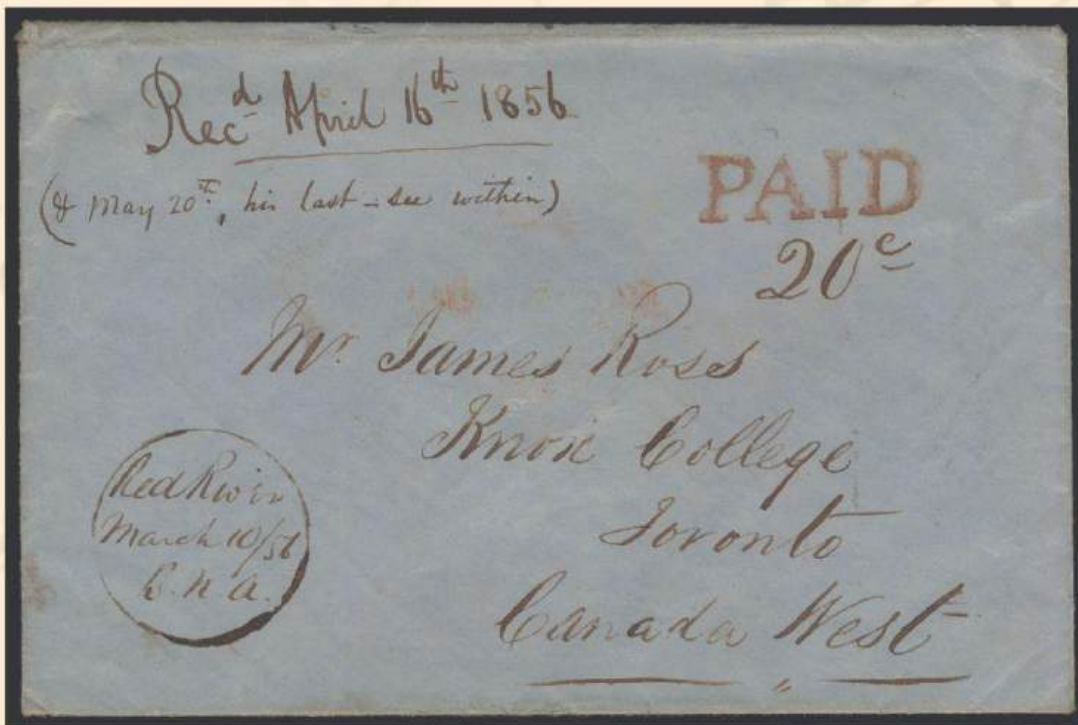 Recd April 16th 1856
(& May 20th, his last - see within)
PAID
20c
Mr James Ross
Knox College
Toronto
Canada West
Red River
March 10/56
B.N.A.